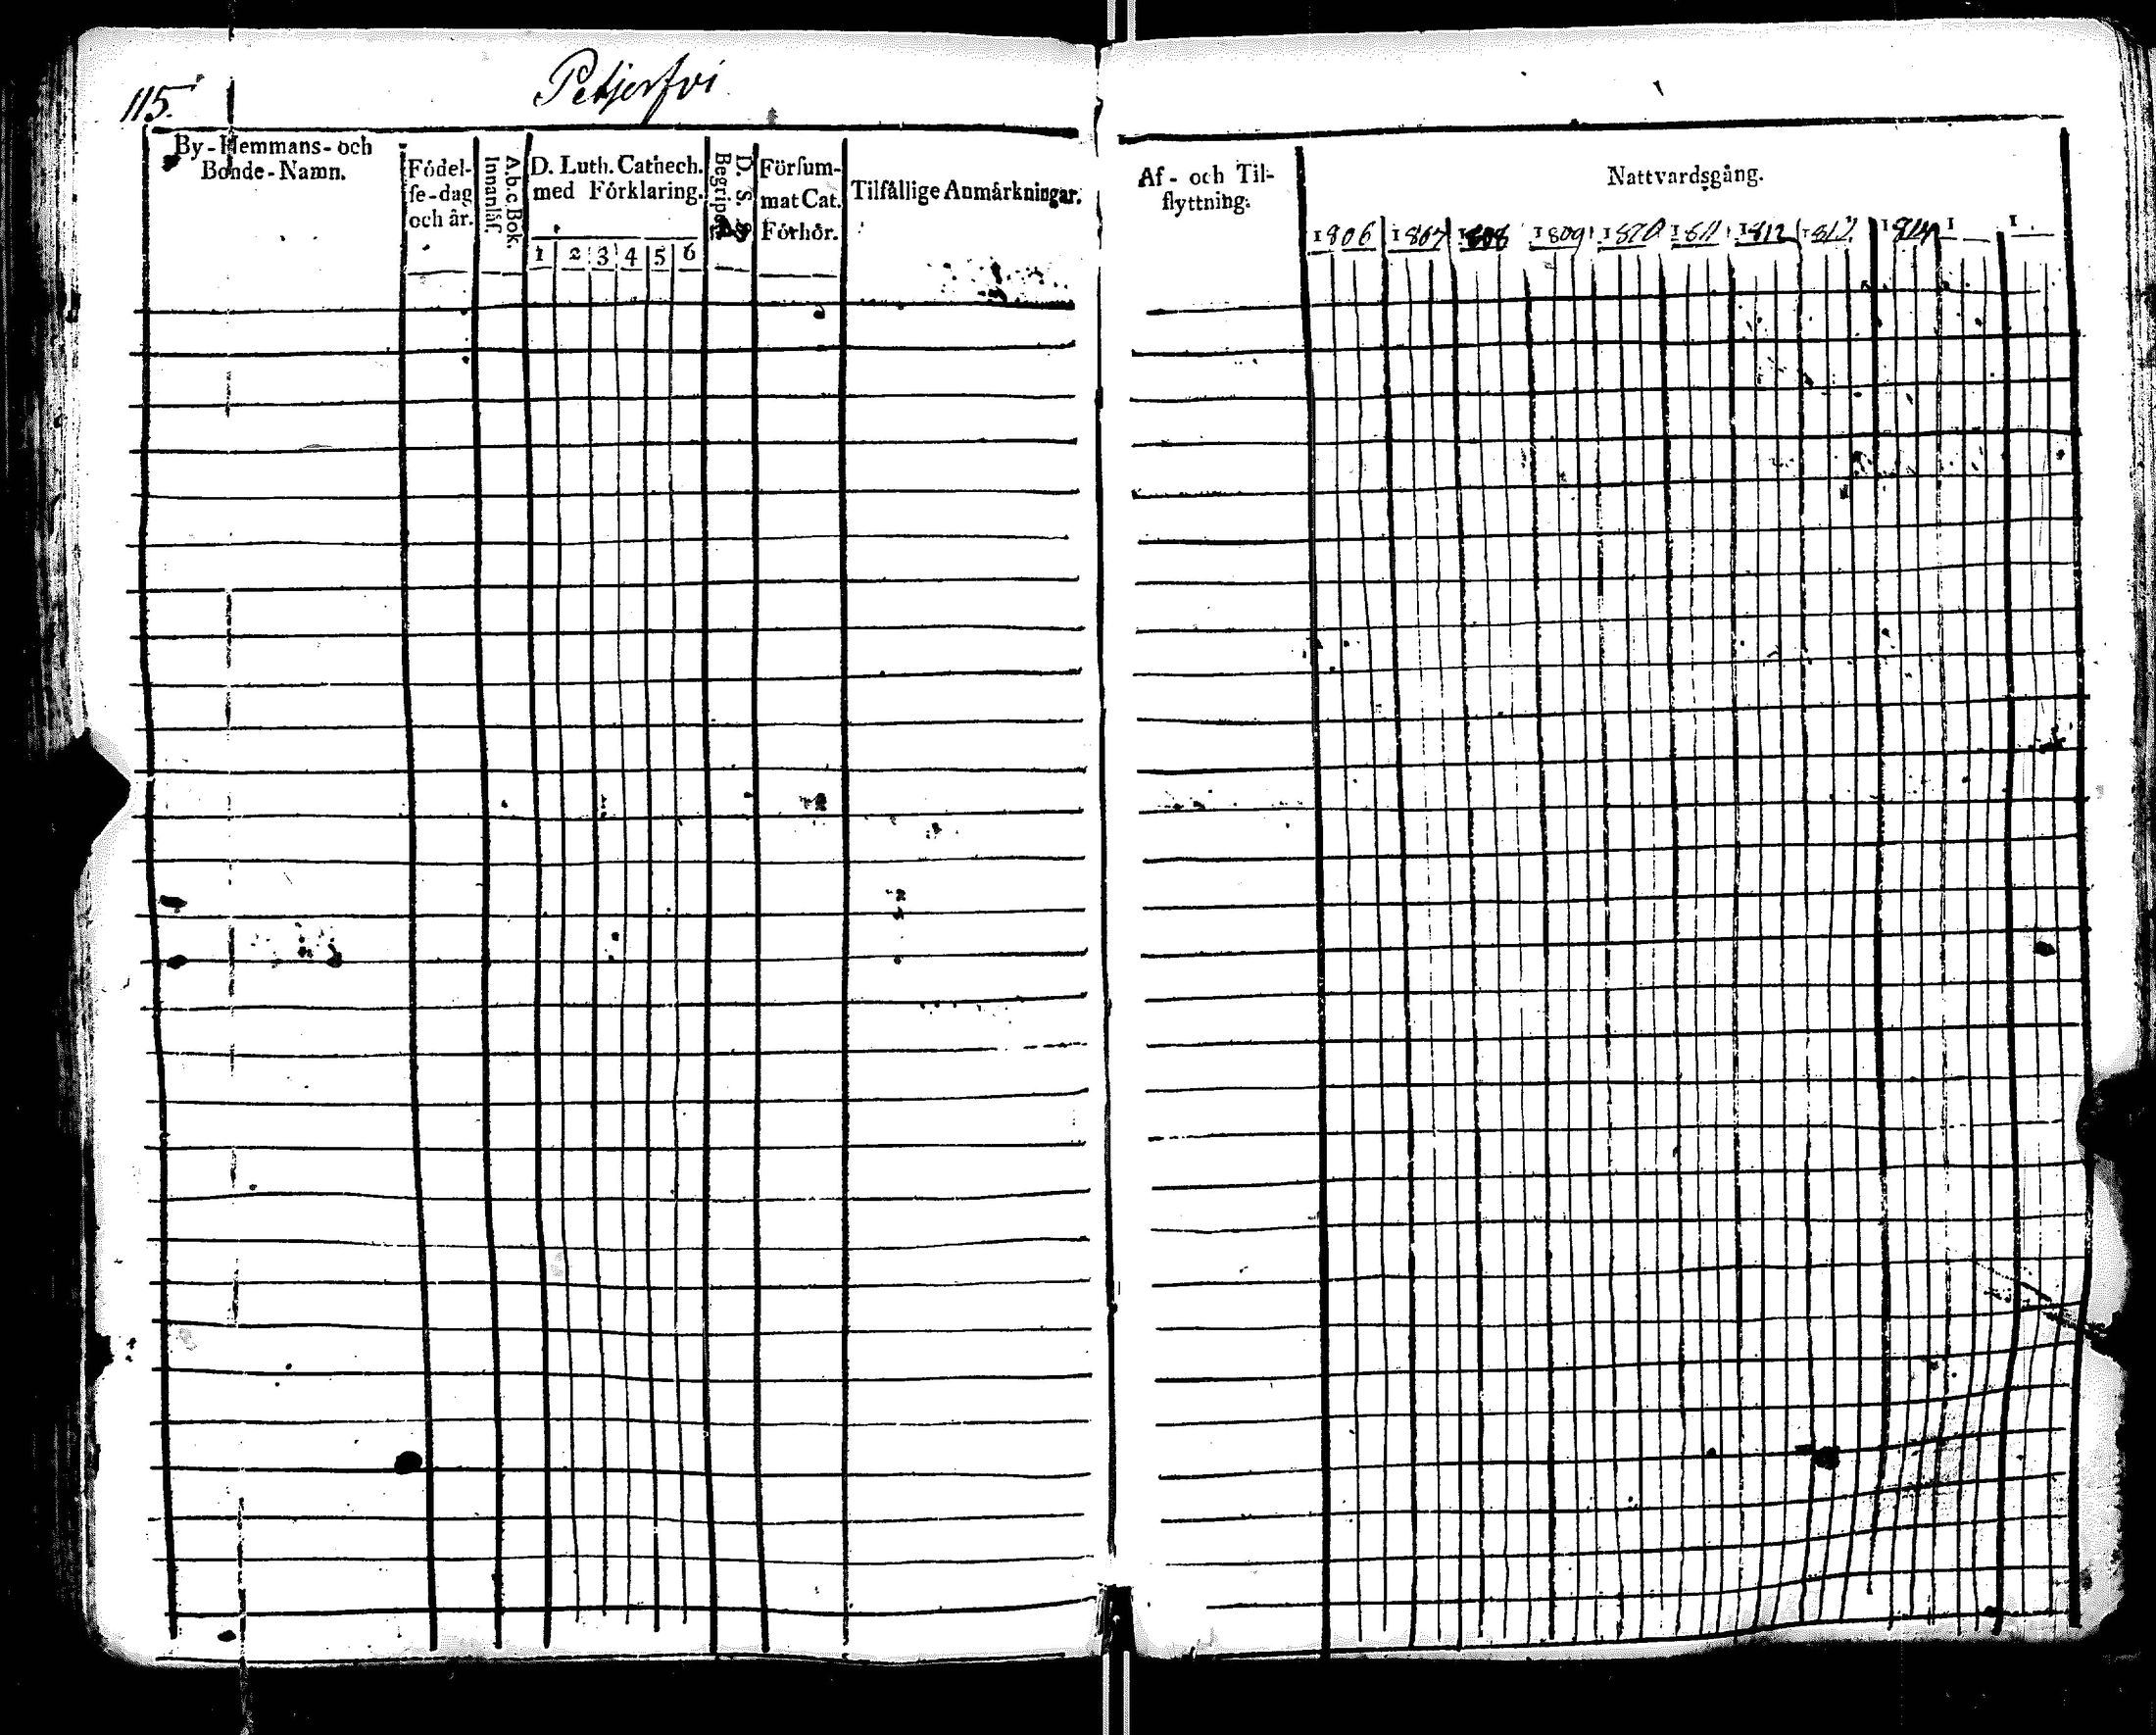 115.
Petjerfvi
By-Hemmans- och
Bonde-Namn.
Födel-
se-dag
och år.
A.b.c. Bok.
Innanläs.
D. Luth. Cathech.
med Förklaring.
1 2 3 4 5 6
D. S.
Försum-
mat Cat.
Förhör.
Tilfällige Anmärkningar.
Af- och Til-
flyttning.
Nattvardsgång.
1806 1807 1808 1809 1810 1811 1812 1814 1 1